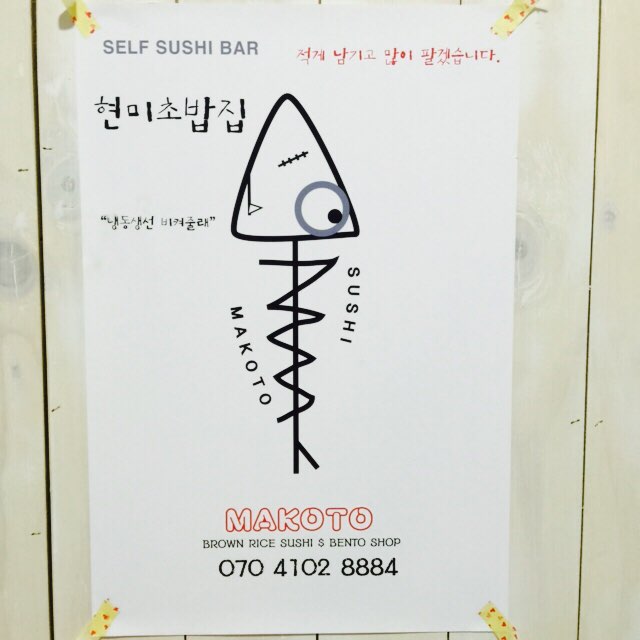 SELF SUSHI BAR
적게 남기고 많이 팔겠습니다.
현미초밥집
“냉동생선 비켜줄래”
SUSHI
MAKOTO
MAKOTO
BROWN RICE SUSHI $ BENTO SHOP
070 4102 8884